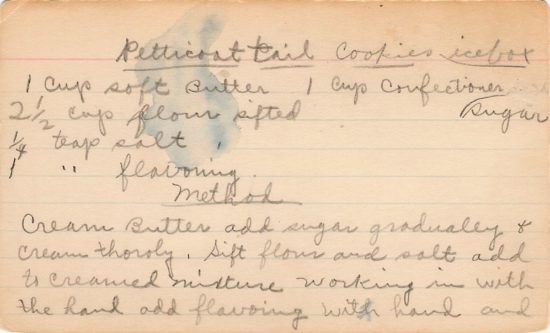 Petticoat Tail Cookies icebox
1 Cup soft Butter 1 Cup Confectioner
2 1/2 cup flour sifted Sugar
1/4 teap salt.
1 " flavoring.
Method
Cream Butter add sugar gradualey &
cream thoroly. Sift flour and salt add
to creamed mixture working in with
the hand add flavoing with hand and